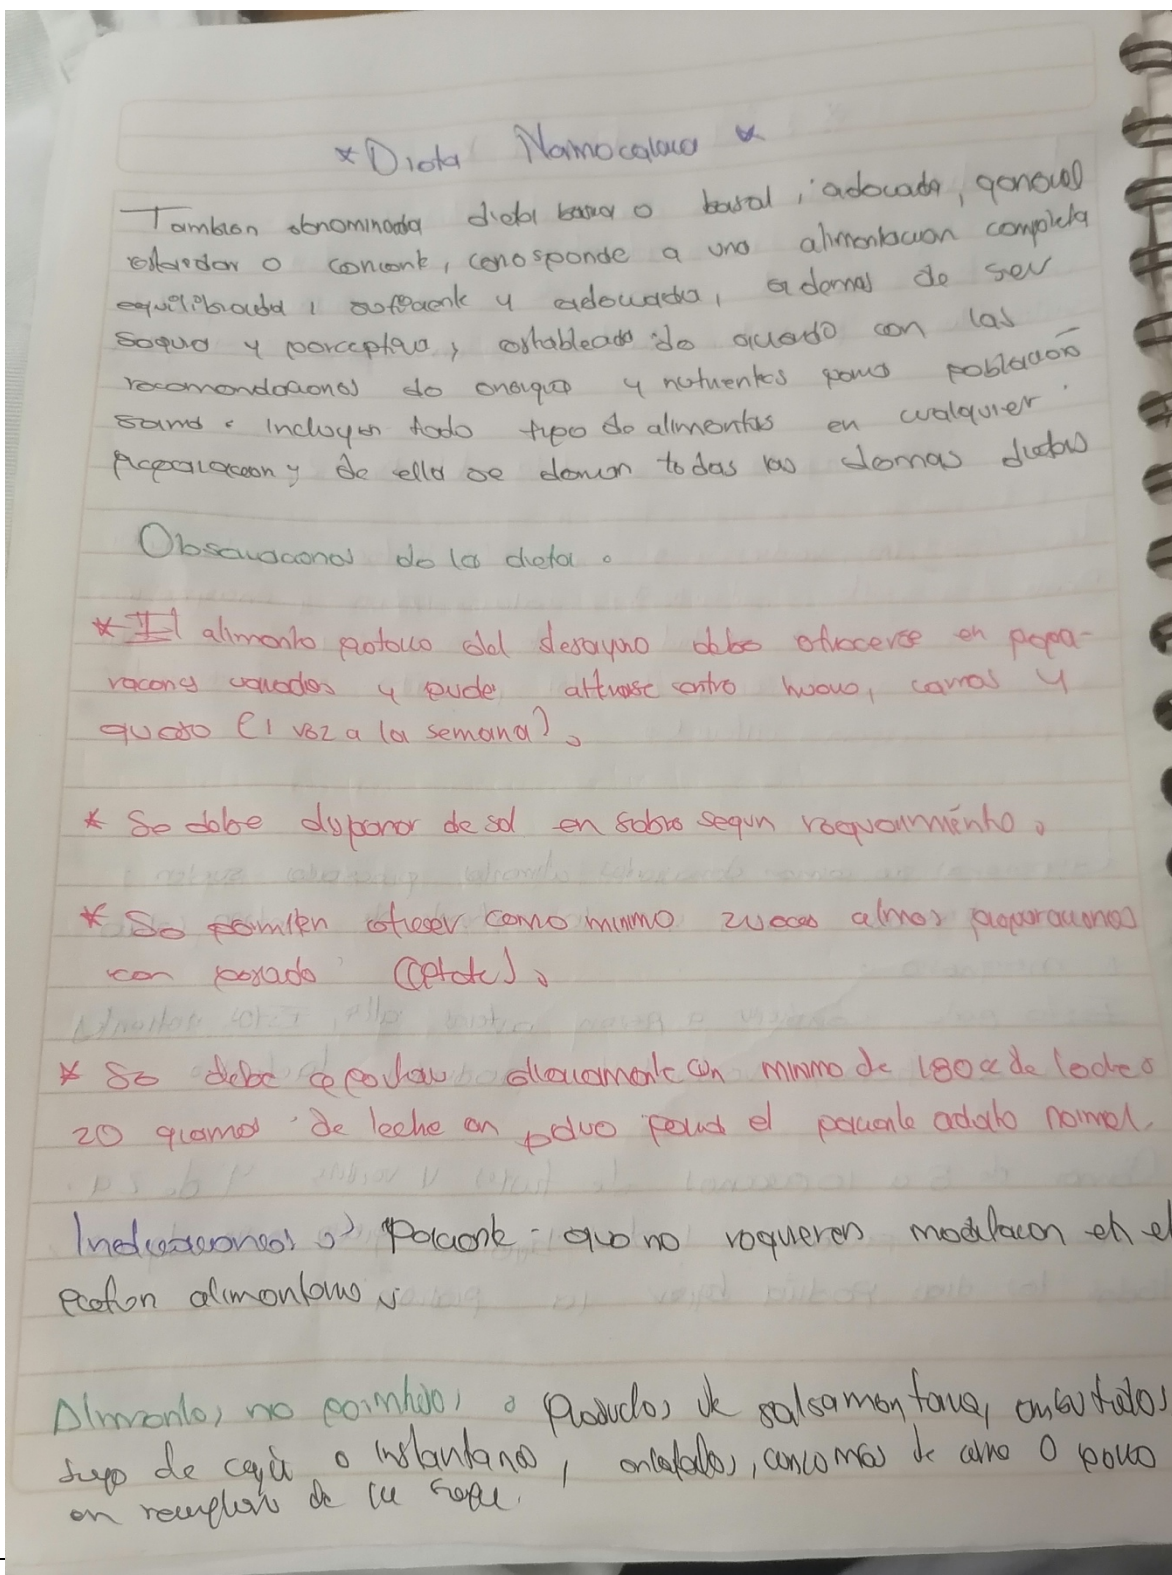 * Dieta Normocalorica *
Tambien denominada dieta basica o basal, adecuada, general
estandar o corriente, corresponde a una alimentacion completa
equilibrada, suficiente y adecuada, ademas de ser
segura y perceptiva, establecido de acuerdo con las
recomendaciones de energia y nutrientes para población
sana. Incluyen todo tipo de alimentos en cualquier
preparacion y de ella se derivan todas las demas dietas
Observaciones de la dieta.
* El alimento proteico del desayuno debe ofrecerse en prepa-
raciones variadas y puede alternarse entre huevo, carnes y
queso (1 vez a la semana).
* Se debe disponer de sal en sobres segun requerimiento.
* Se permiten ofrecer como minimo 2 veces al mes preparaciones
con pescado
* Se debe diariamente un minimo de 180cc de leche o
20 gramos de leche en polvo para el paciente adulto normal.
Indicaciones: Paciente que no requieren modificacion en el
patron alimentario.
Alimentos no permitidos: Productos de salsamentaria, embutidos
jugo de caja o instantaneos, enlatados, de carne o pollo
en de la